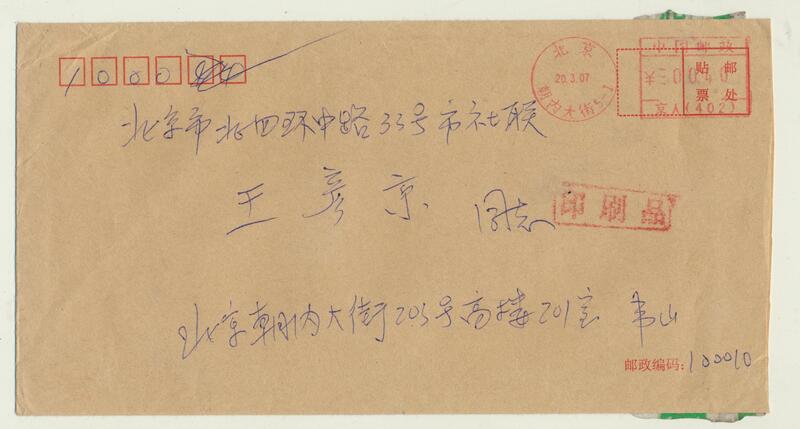 1 0 0 0
北京
20.3.07
朝内大街5-1
中国邮政
0040
京A(402)
贴邮
票处
北京市北四环中路33号市社联
王彦京 同志
印刷品
北京朝内大街203号高楼201室 韦山
邮政编码:100010